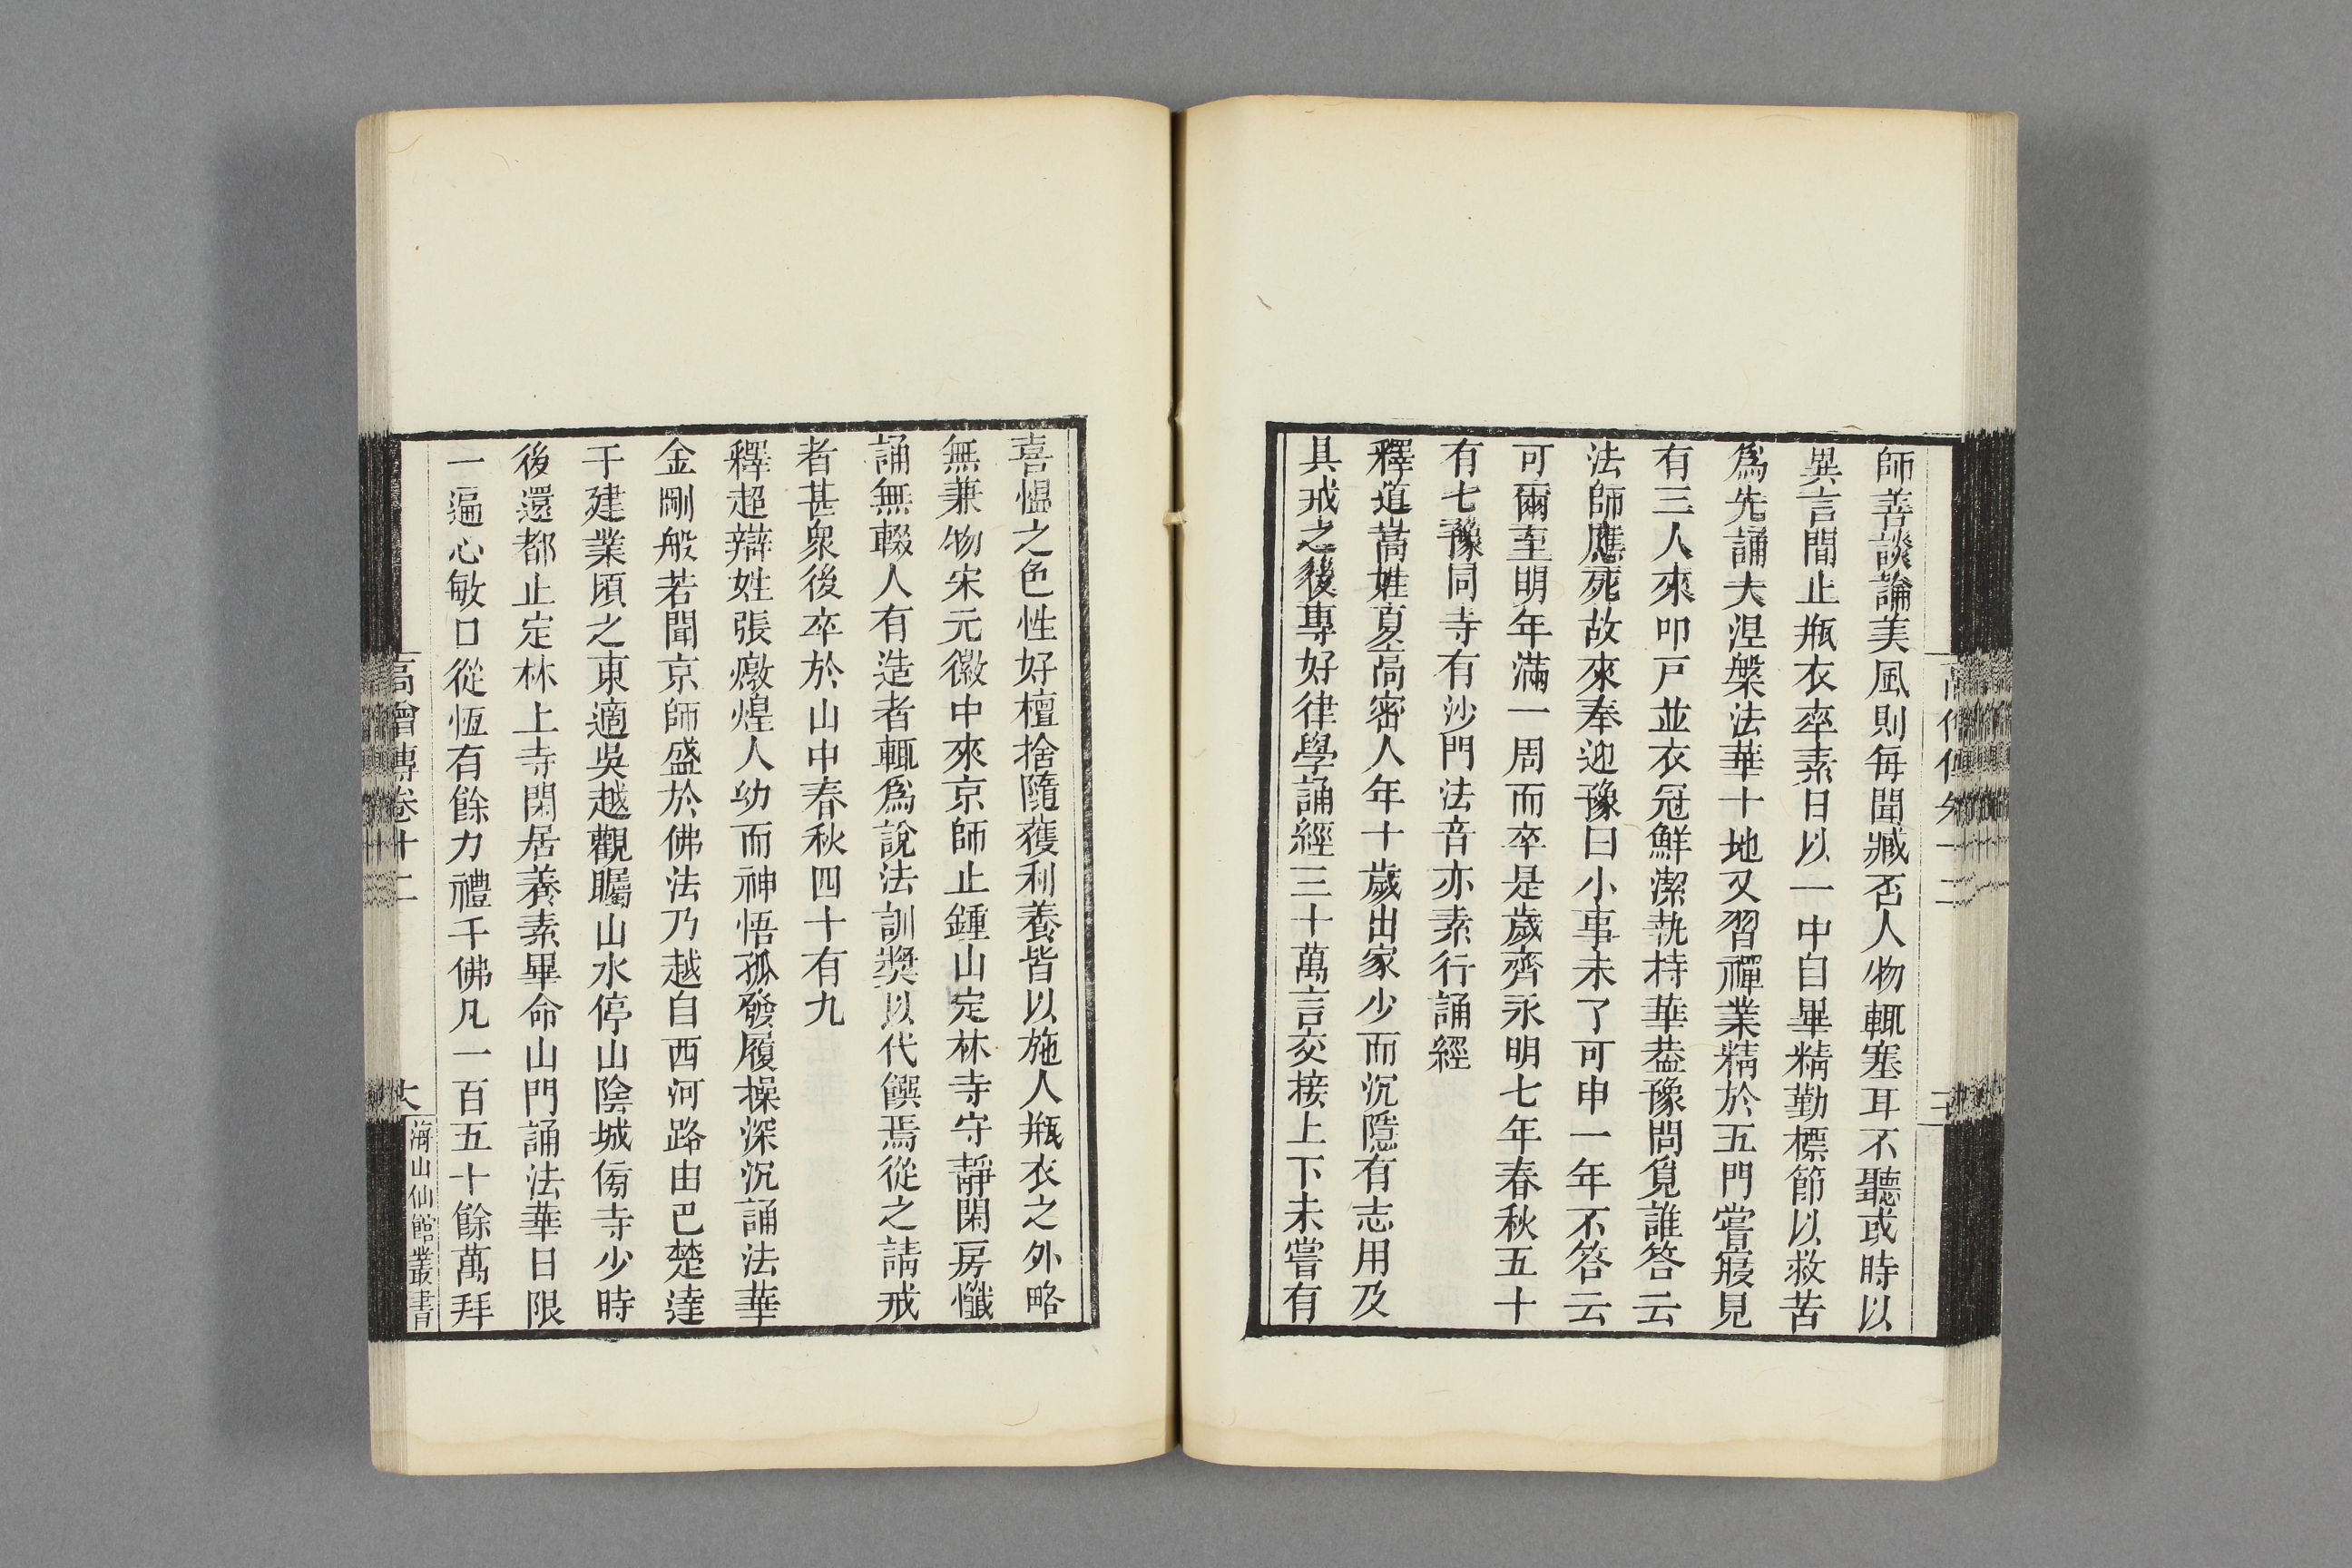 師善談論美風則每聞臧否人物輒塞耳不聽或時以
異言間止瓶衣率素日以一中自畢精勤標節以救苦
爲先誦大涅槃法華十地又習禪業精於五門嘗寢見
有三人來叩戸並衣冠鮮潔執持華葢豫問覓誰答云
法師應死故來奉迎豫曰小事未了可申一年不答云
可爾至明年滿一周而卒是歲齊永明七年春秋五十
有七豫同寺有沙門法音亦素行誦經
釋道嵩姓夏高密人年十歲出家少而沉隱有志用及
具戒之後專好律學誦經三十萬言交接上下未嘗有
喜慍之色性好檀捨隨獲利養皆以施人瓶衣之外略
無兼物宋元徽中來京師止鍾山定林寺守靜閑房懺
誦無輟人有造者輒爲說法訓奬以代饌焉從之請戒
者甚衆後卒於山中春秋四十有九
釋超辯姓張燉煌人幼而神悟孤發履操深沉誦法華
金剛般若聞京師盛於佛法乃越自西河路由巴楚達
于建業頃之東適吳越觀矚山水停山陰城傍寺少時
後還都止定林上寺閑居養素畢命山門誦法華日限
一遍心敏口從恆有餘力禮千佛凡一百五十餘萬拜
高僧傳卷十二
海山仙館叢書